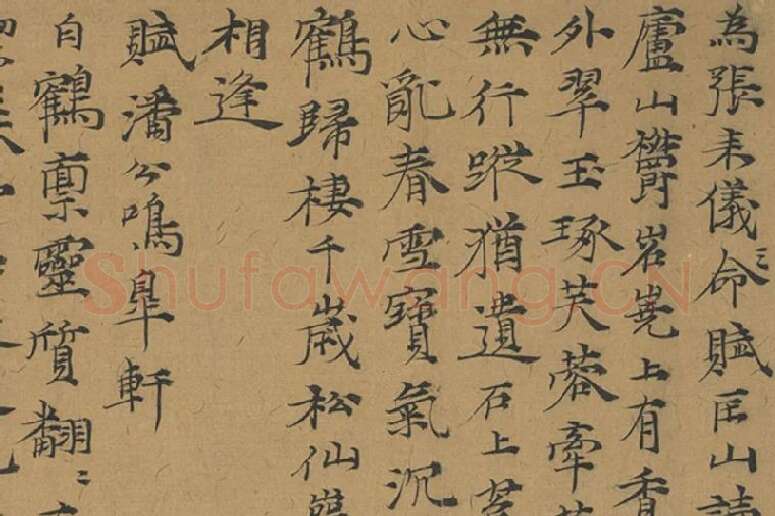 為張来儀命賦匡山讀
廬山欝岧嶤上有香
外翠玉琢芙蓉牽
無行蹤猶遺石上
心亂春雪寶氣沉
鶴歸棲千歲松仙巖
相逢
賦潘公鳴皐軒
白鶴稟靈質翻〻
Shufawang.CN